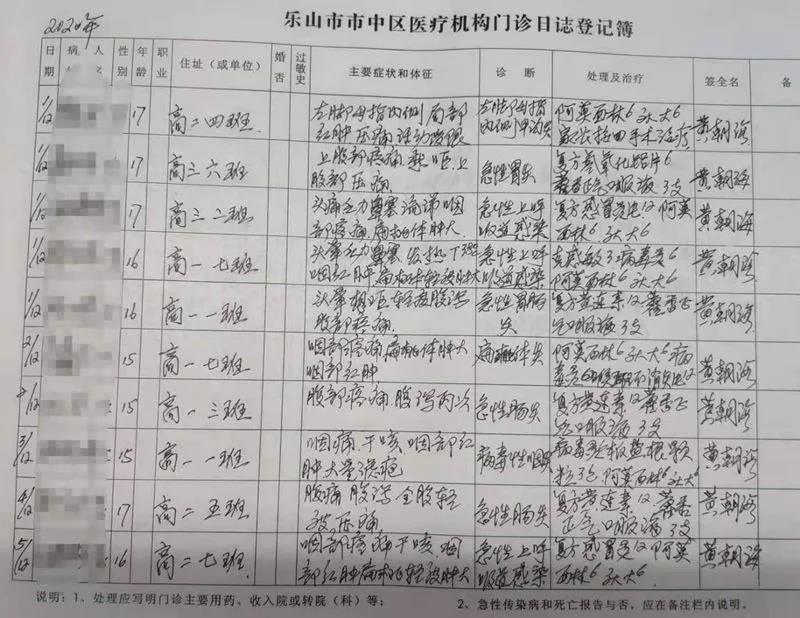 乐山市市中区医疗机构门诊日志登记簿
2020年
日期 病人 性别 年龄 职业 住址（或单位） 婚否 过敏史 主要症状和体征 诊断 处理及治疗 签全名 备
1/12 17 高二四班 左脚母指内侧局部 左脚母指 阿莫西林6 头大6 黄朝海
红肿压痛 内侧甲沟炎 家长接回手术治疗
1/12 17 高三六班 上腹部疼痛 上 急性胃炎 复方氢氧化铝片6 黄朝海
腹部压痛 藿香正气口服液3支
1/12 17 高三二班 头痛乏力鼻塞流涕咽 急性上呼 复方感冒灵12 阿莫 黄朝海
部疼痛 扁桃体肿大 吸道感染 西林6 头大6
1/12 16 高一七班 头晕乏力鼻塞发热 急性上呼 黄朝海
咽红肿 扁桃体轻度肿大 吸道感染 阿莫西林6 头大6
1/12 16 高一一班 头晕 轻度腹泻 急性胃肠 复方黄连素12 藿香正 黄朝海
腹部疼痛 炎 气口服液3支
2/12 15 高一七班 咽部疼痛 扁桃体肿大 扁桃体炎 阿莫西林6 头大6 病 黄朝海
咽部红肿
2/12 15 高一三班 腹部疼痛 腹泻两次 急性肠炎 复方黄连素12 藿香正 黄朝海
气口服液3支
3/12 15 高一一班 咽痛 干咳 咽部红 病毒性咽炎 板蓝根颗 黄朝海
肿大量滤疱 粒3包 阿莫西林6 头大6
4/12 17 高二五班 腹痛 腹泻 全腹轻 急性肠炎 复方黄连素12 藿香 黄朝海
度压痛 正气口服液3支
5/12 16 高二七班 咽部疼痛 干咳 咽 急性上呼 复方感冒灵12 阿莫 黄朝海
部红肿 扁桃轻度肿大 吸道感染 西林6 头大6
说明：1、处理应写明门诊主要用药、收入院或转院（科）等； 2、急性传染病和死亡报告与否，应在备注栏内说明。